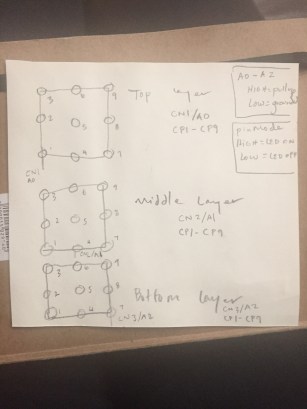 3 6 9
2 5 8
1 4 7
CN1
A0
Top layer
CN1/A0
CP1 - CP9
A0 - A2
Low = ground
pinMode
High = LED on
Low = LED off
3 6 9
2 5 8
1 4 7
Middle Layer
CN2/A1
CP1 - CP9
3 6 9
2 5 8
1 4 7
CN3/A2
Bottom layer
CN3/A2
CP1 - CP9